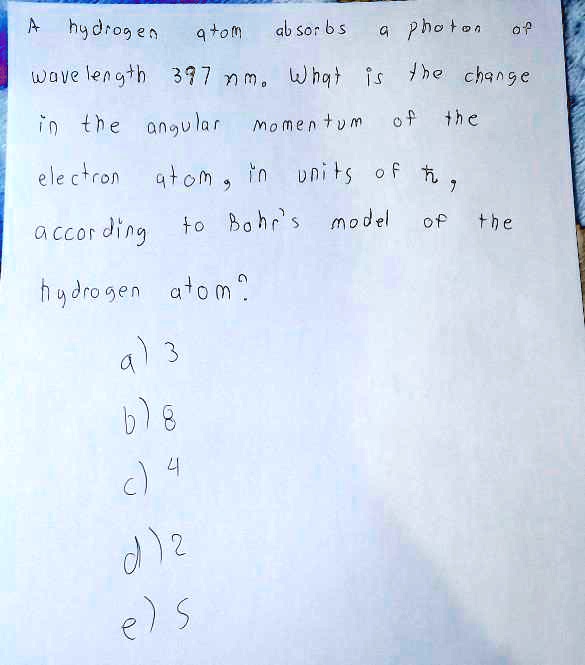 A hydrogen atom absorbs a photon of
wavelength 397 nm. What is the change
in the angular momentum of the
electron atom, in units of ħ,
according to Bohr's model of the
hydrogen atom?
a) 3
b) 8
c) 4
d) 2
e) 5